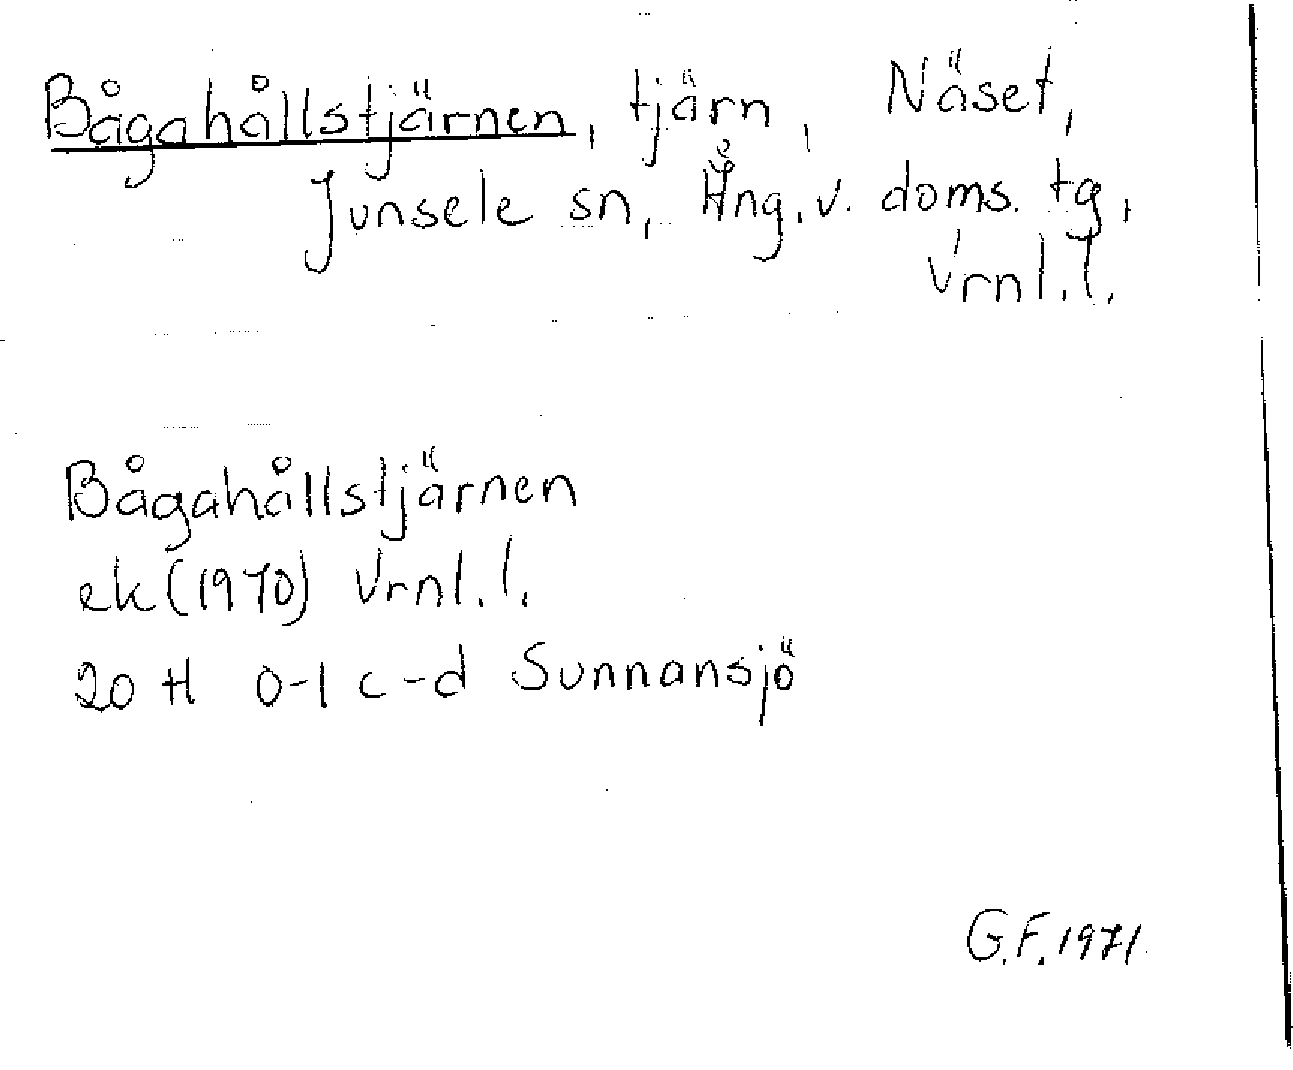 Bågahållstjärnen, tjärn, Näset,
Junsele sn, Ång. v. doms. tg,
Vrnl. l.
Bågahållstjärnen
ek (1970) Vrnl. l.
20 H 0-1 c-d Sunnansjö
G.F. 1971